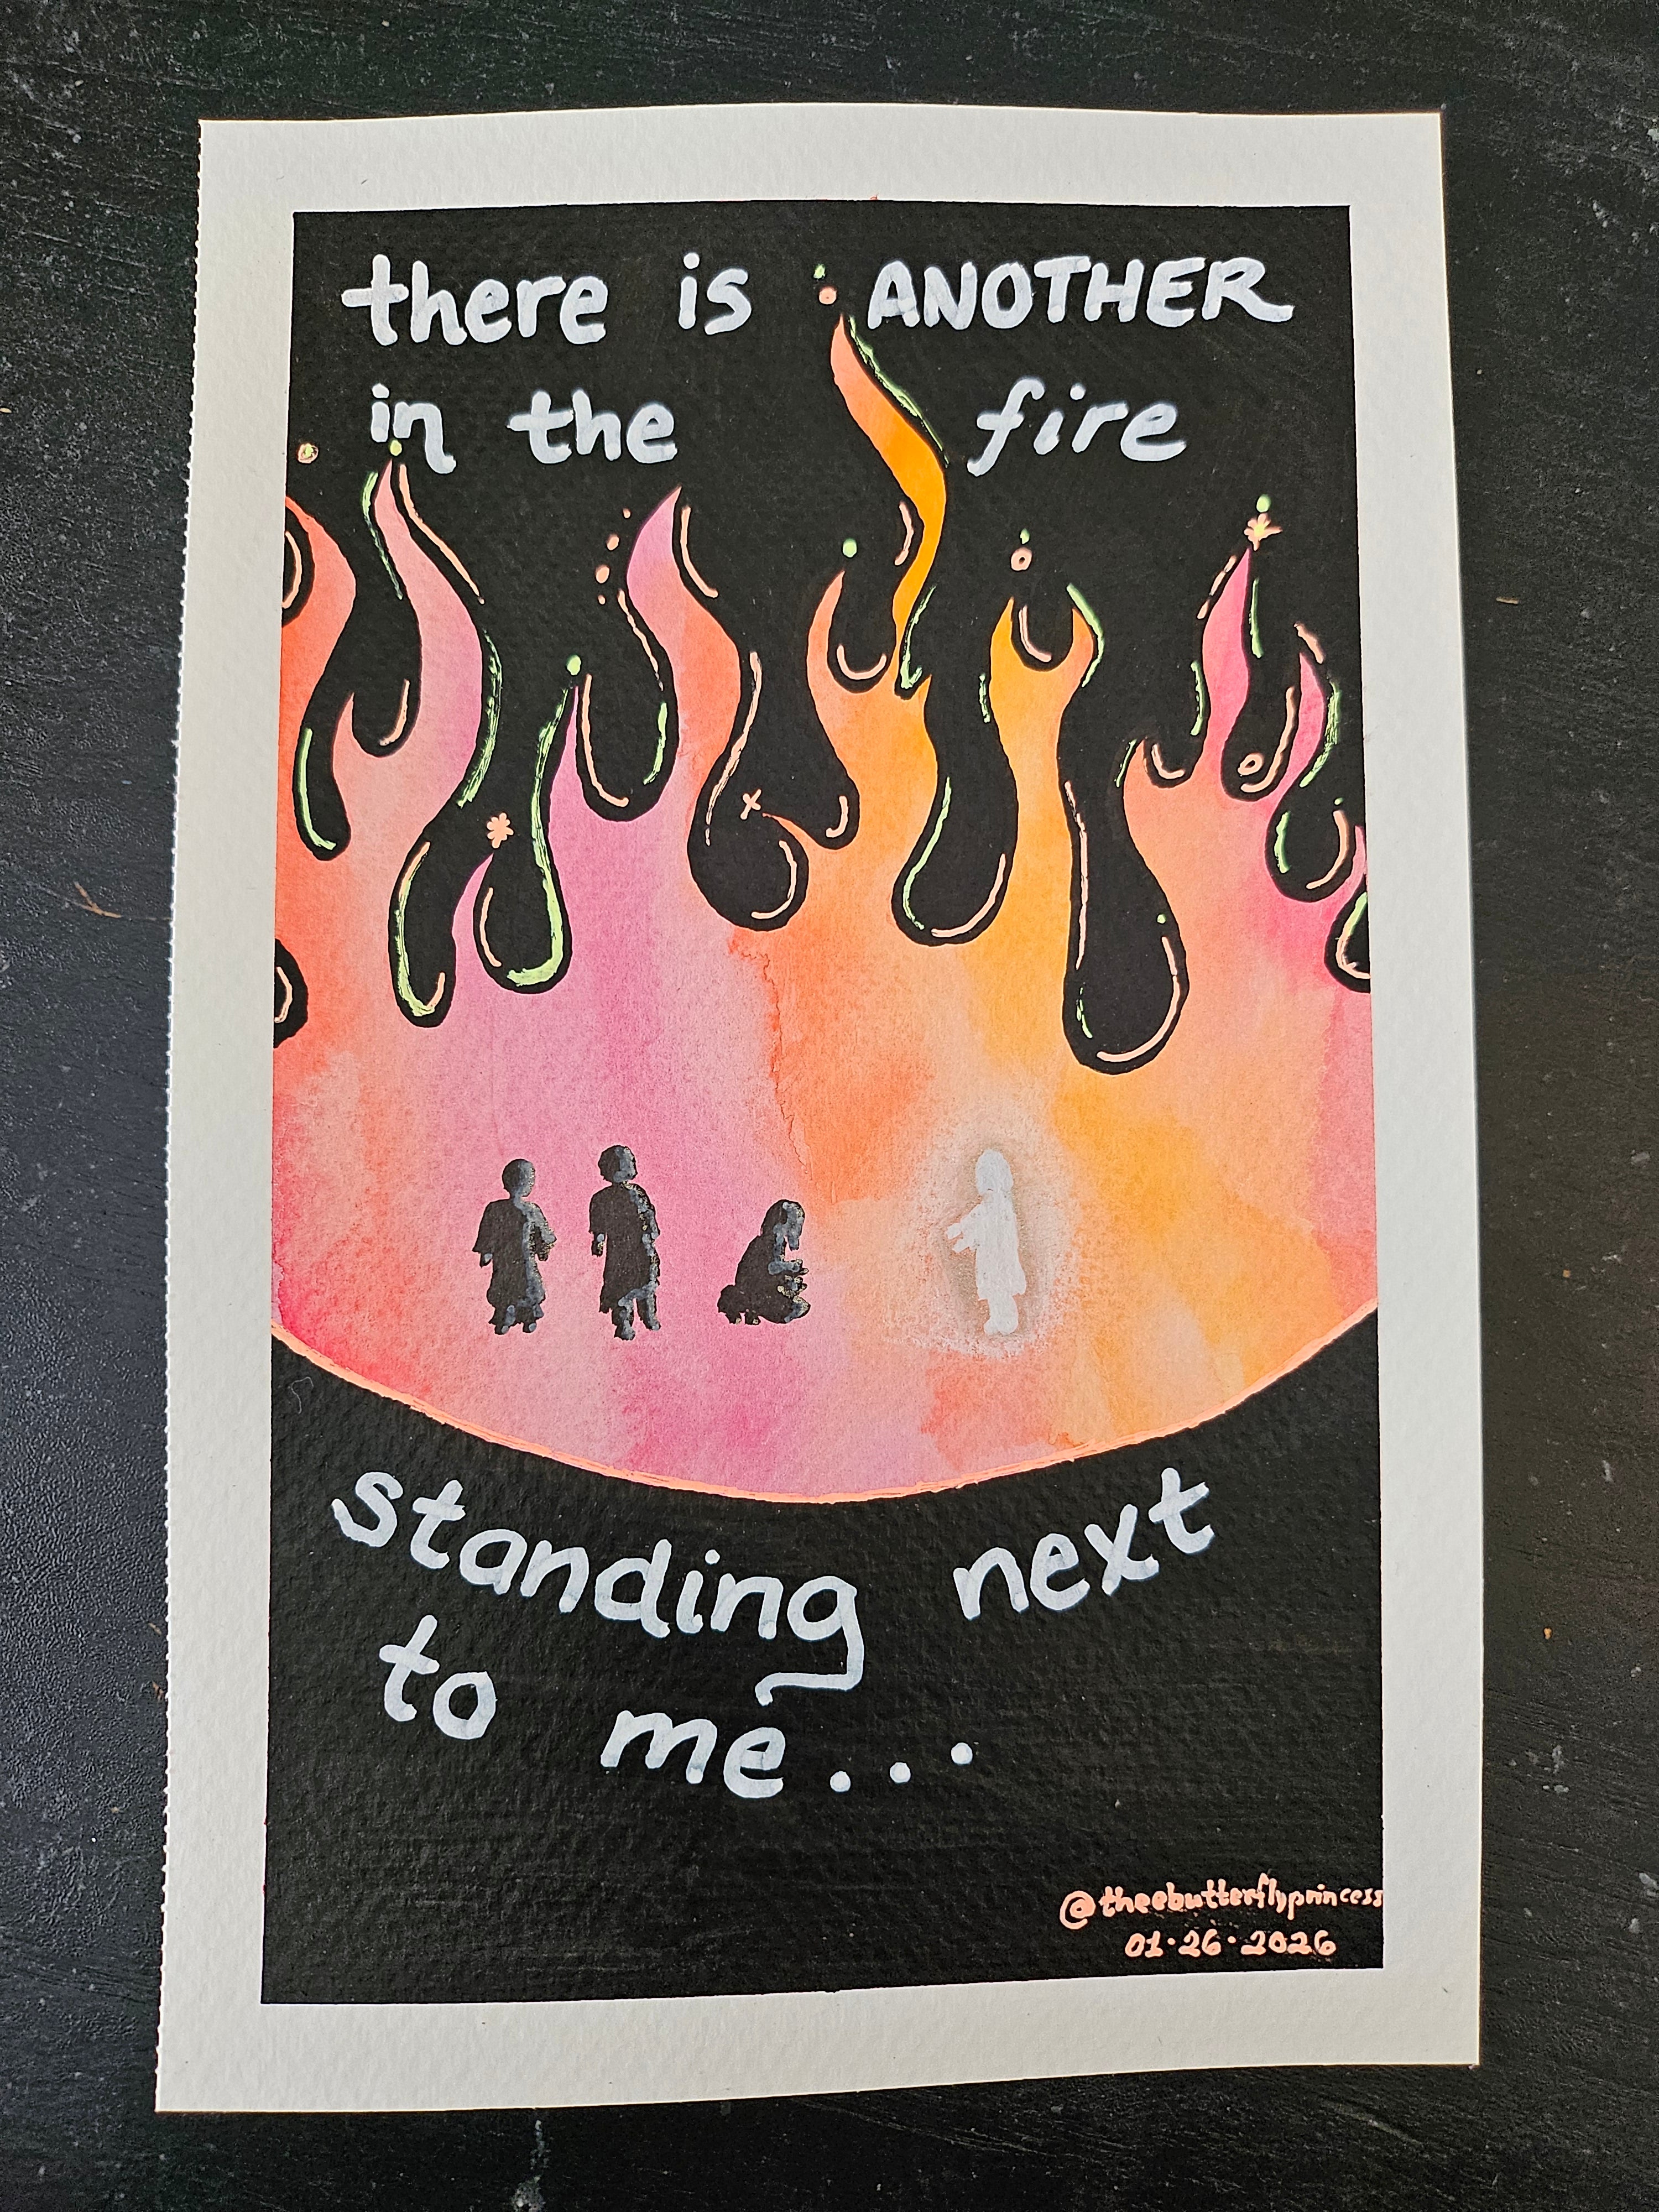 there is ANOTHER
in the fire
standing next
to me...
@theebutterflyprincess
01·26·2026